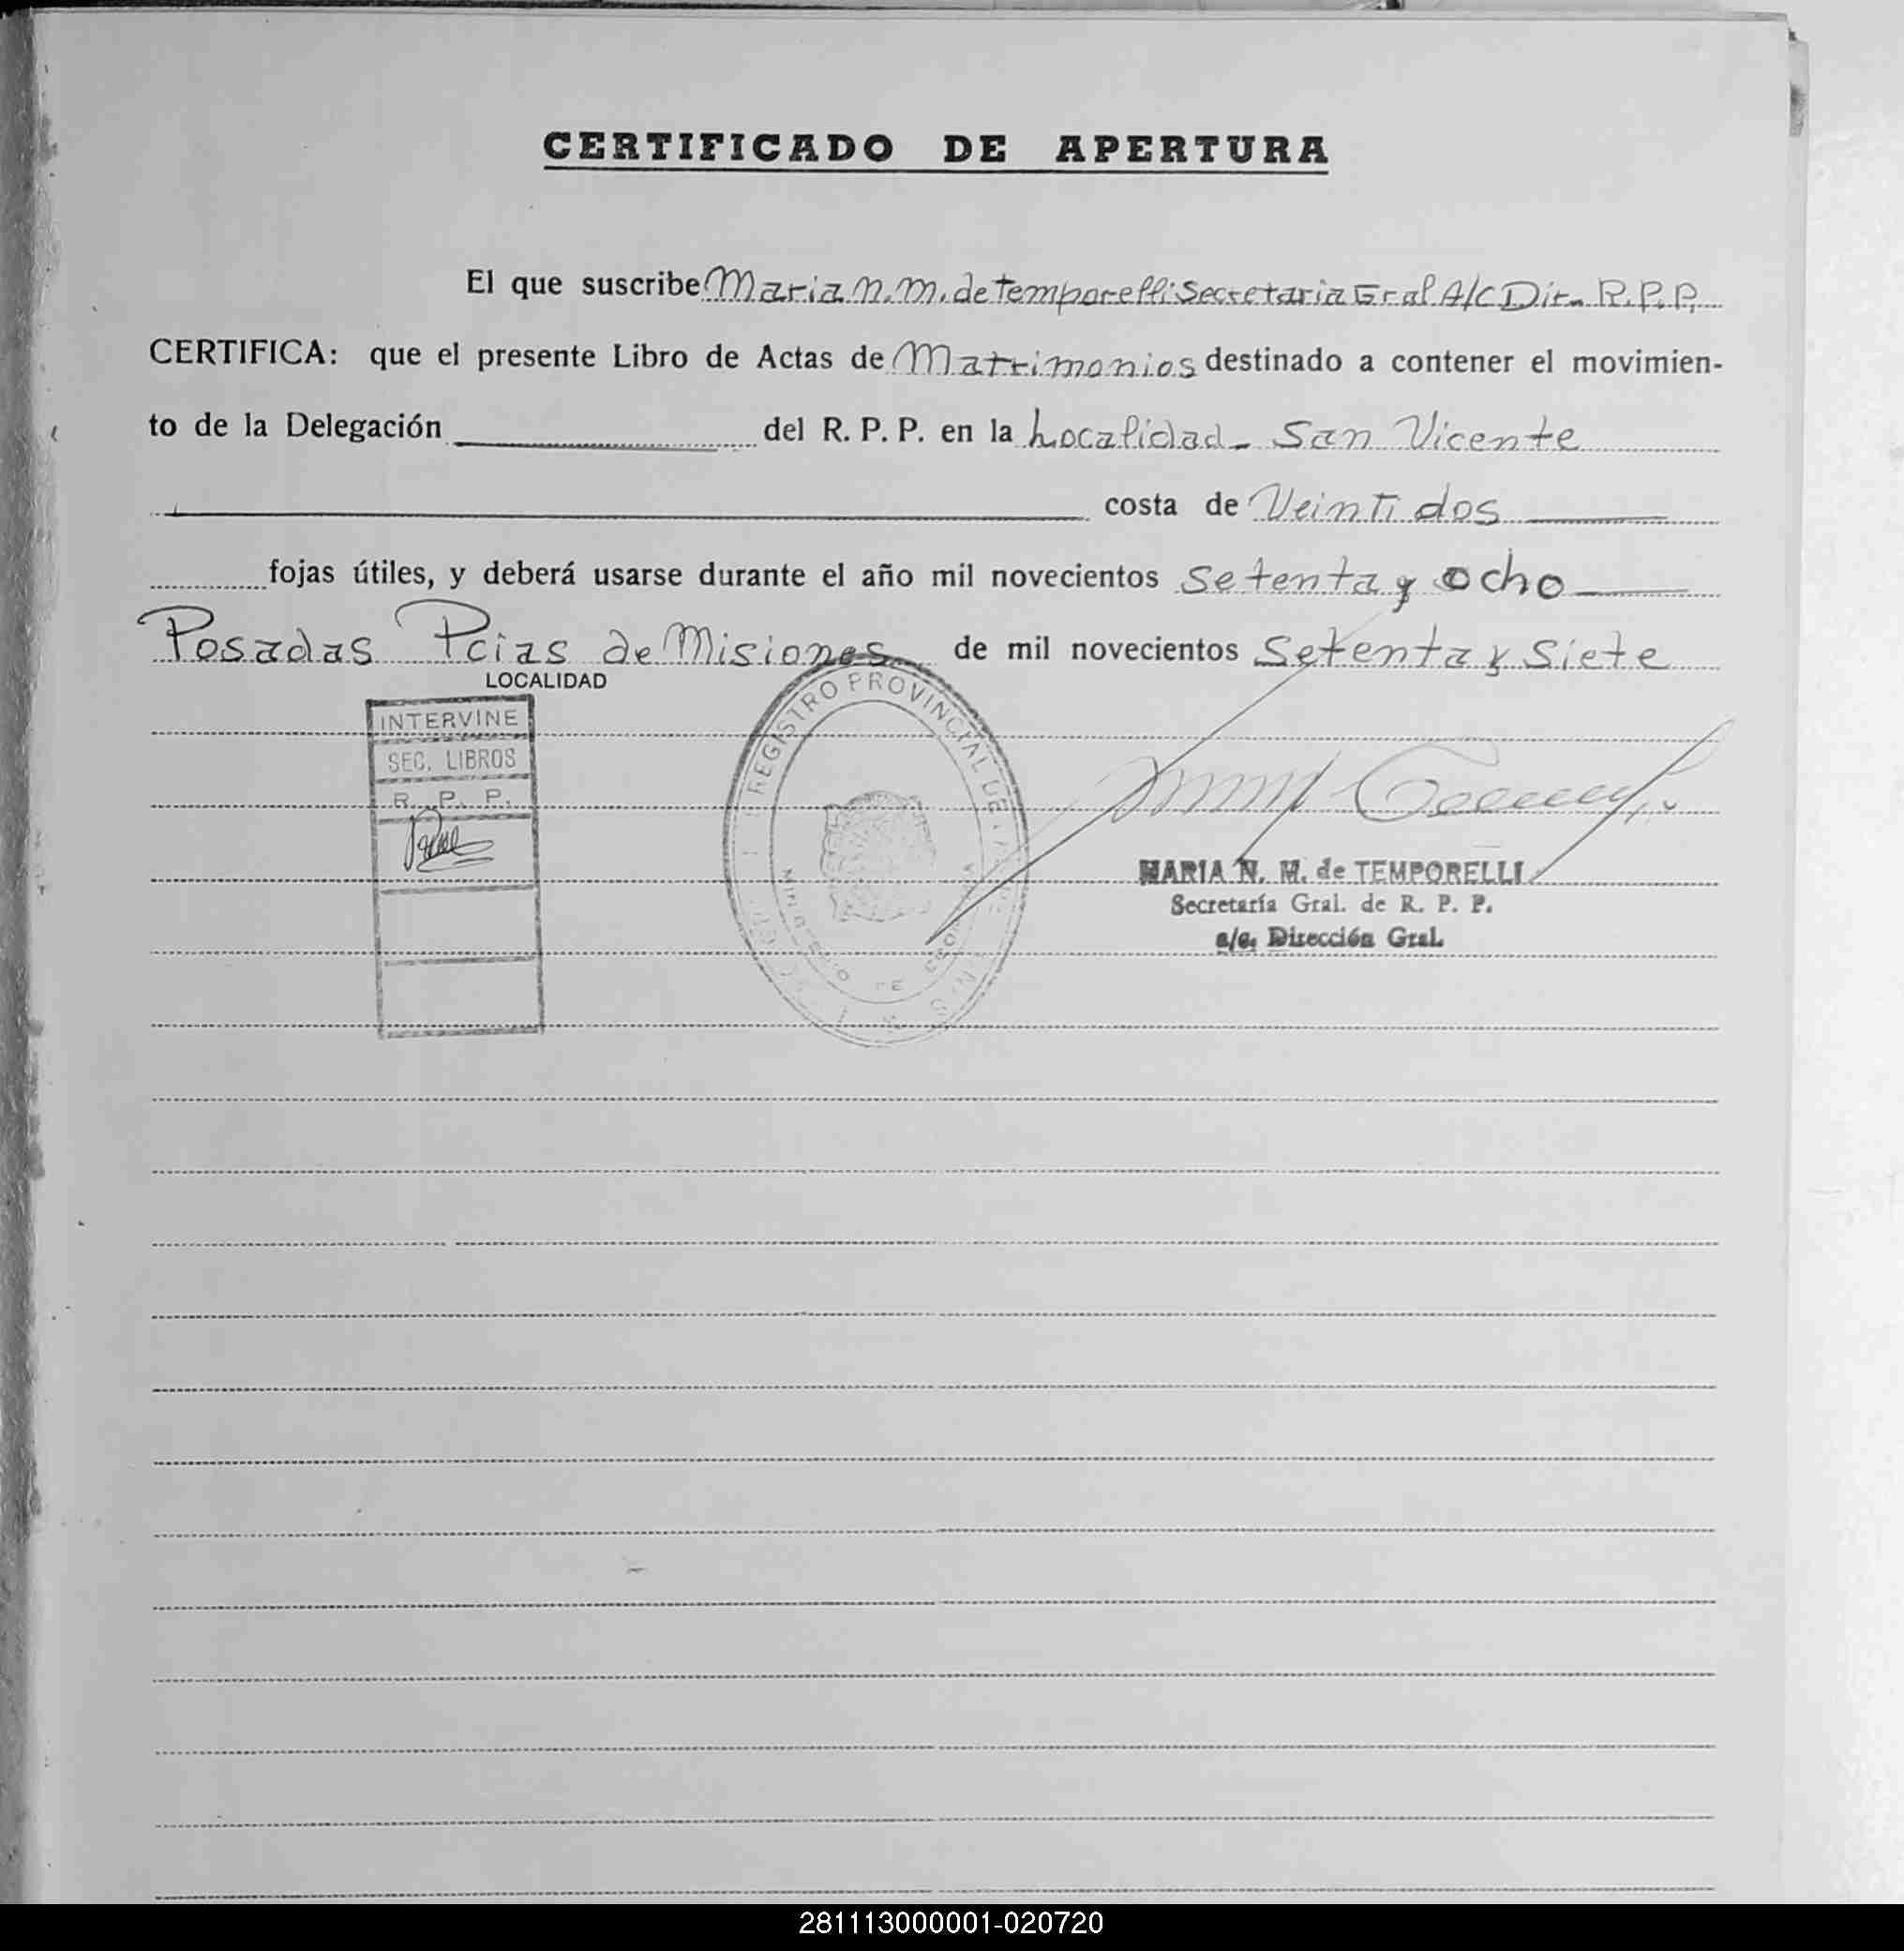 CERTIFICADO DE APERTURA
El que suscribe Maria N. M. de Temporelli Secretaria Gral A/C Dir. R.P.P.
CERTIFICA: que el presente Libro de Actas de Matrimonios destinado a contener el movimien-
to de la Delegación del R. P. P. en la Localidad - San Vicente
costa de Veinti dos
fojas útiles, y deberá usarse durante el año mil novecientos Setenta y ocho
Posadas Pcias de Misiones de mil novecientos Setenta y Siete
LOCALIDAD
INTERVINE
SEC. LIBROS
R. P. P.
REGISTRO PROVINCIAL DE
MARIA N. M. de TEMPORELLI
Secretaría Gral. de R. P. P.
a/c. Dirección Gral.
281113000001-020720